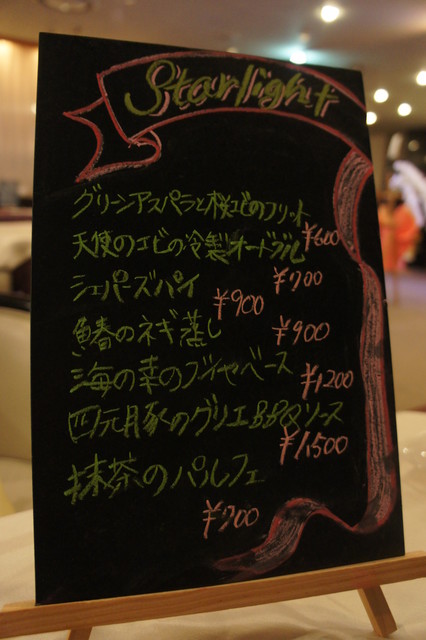 Starlight
グリーンアスパラと桜エビのフリット
¥600
天使のエビの冷製オードブル
¥700
シェパーズパイ
¥900
鰆のネギ蒸し
¥900
海の幸のブイヤベース
¥1200
四元豚のグリエBBQソース
¥1,500
抹茶のパルフェ
¥700